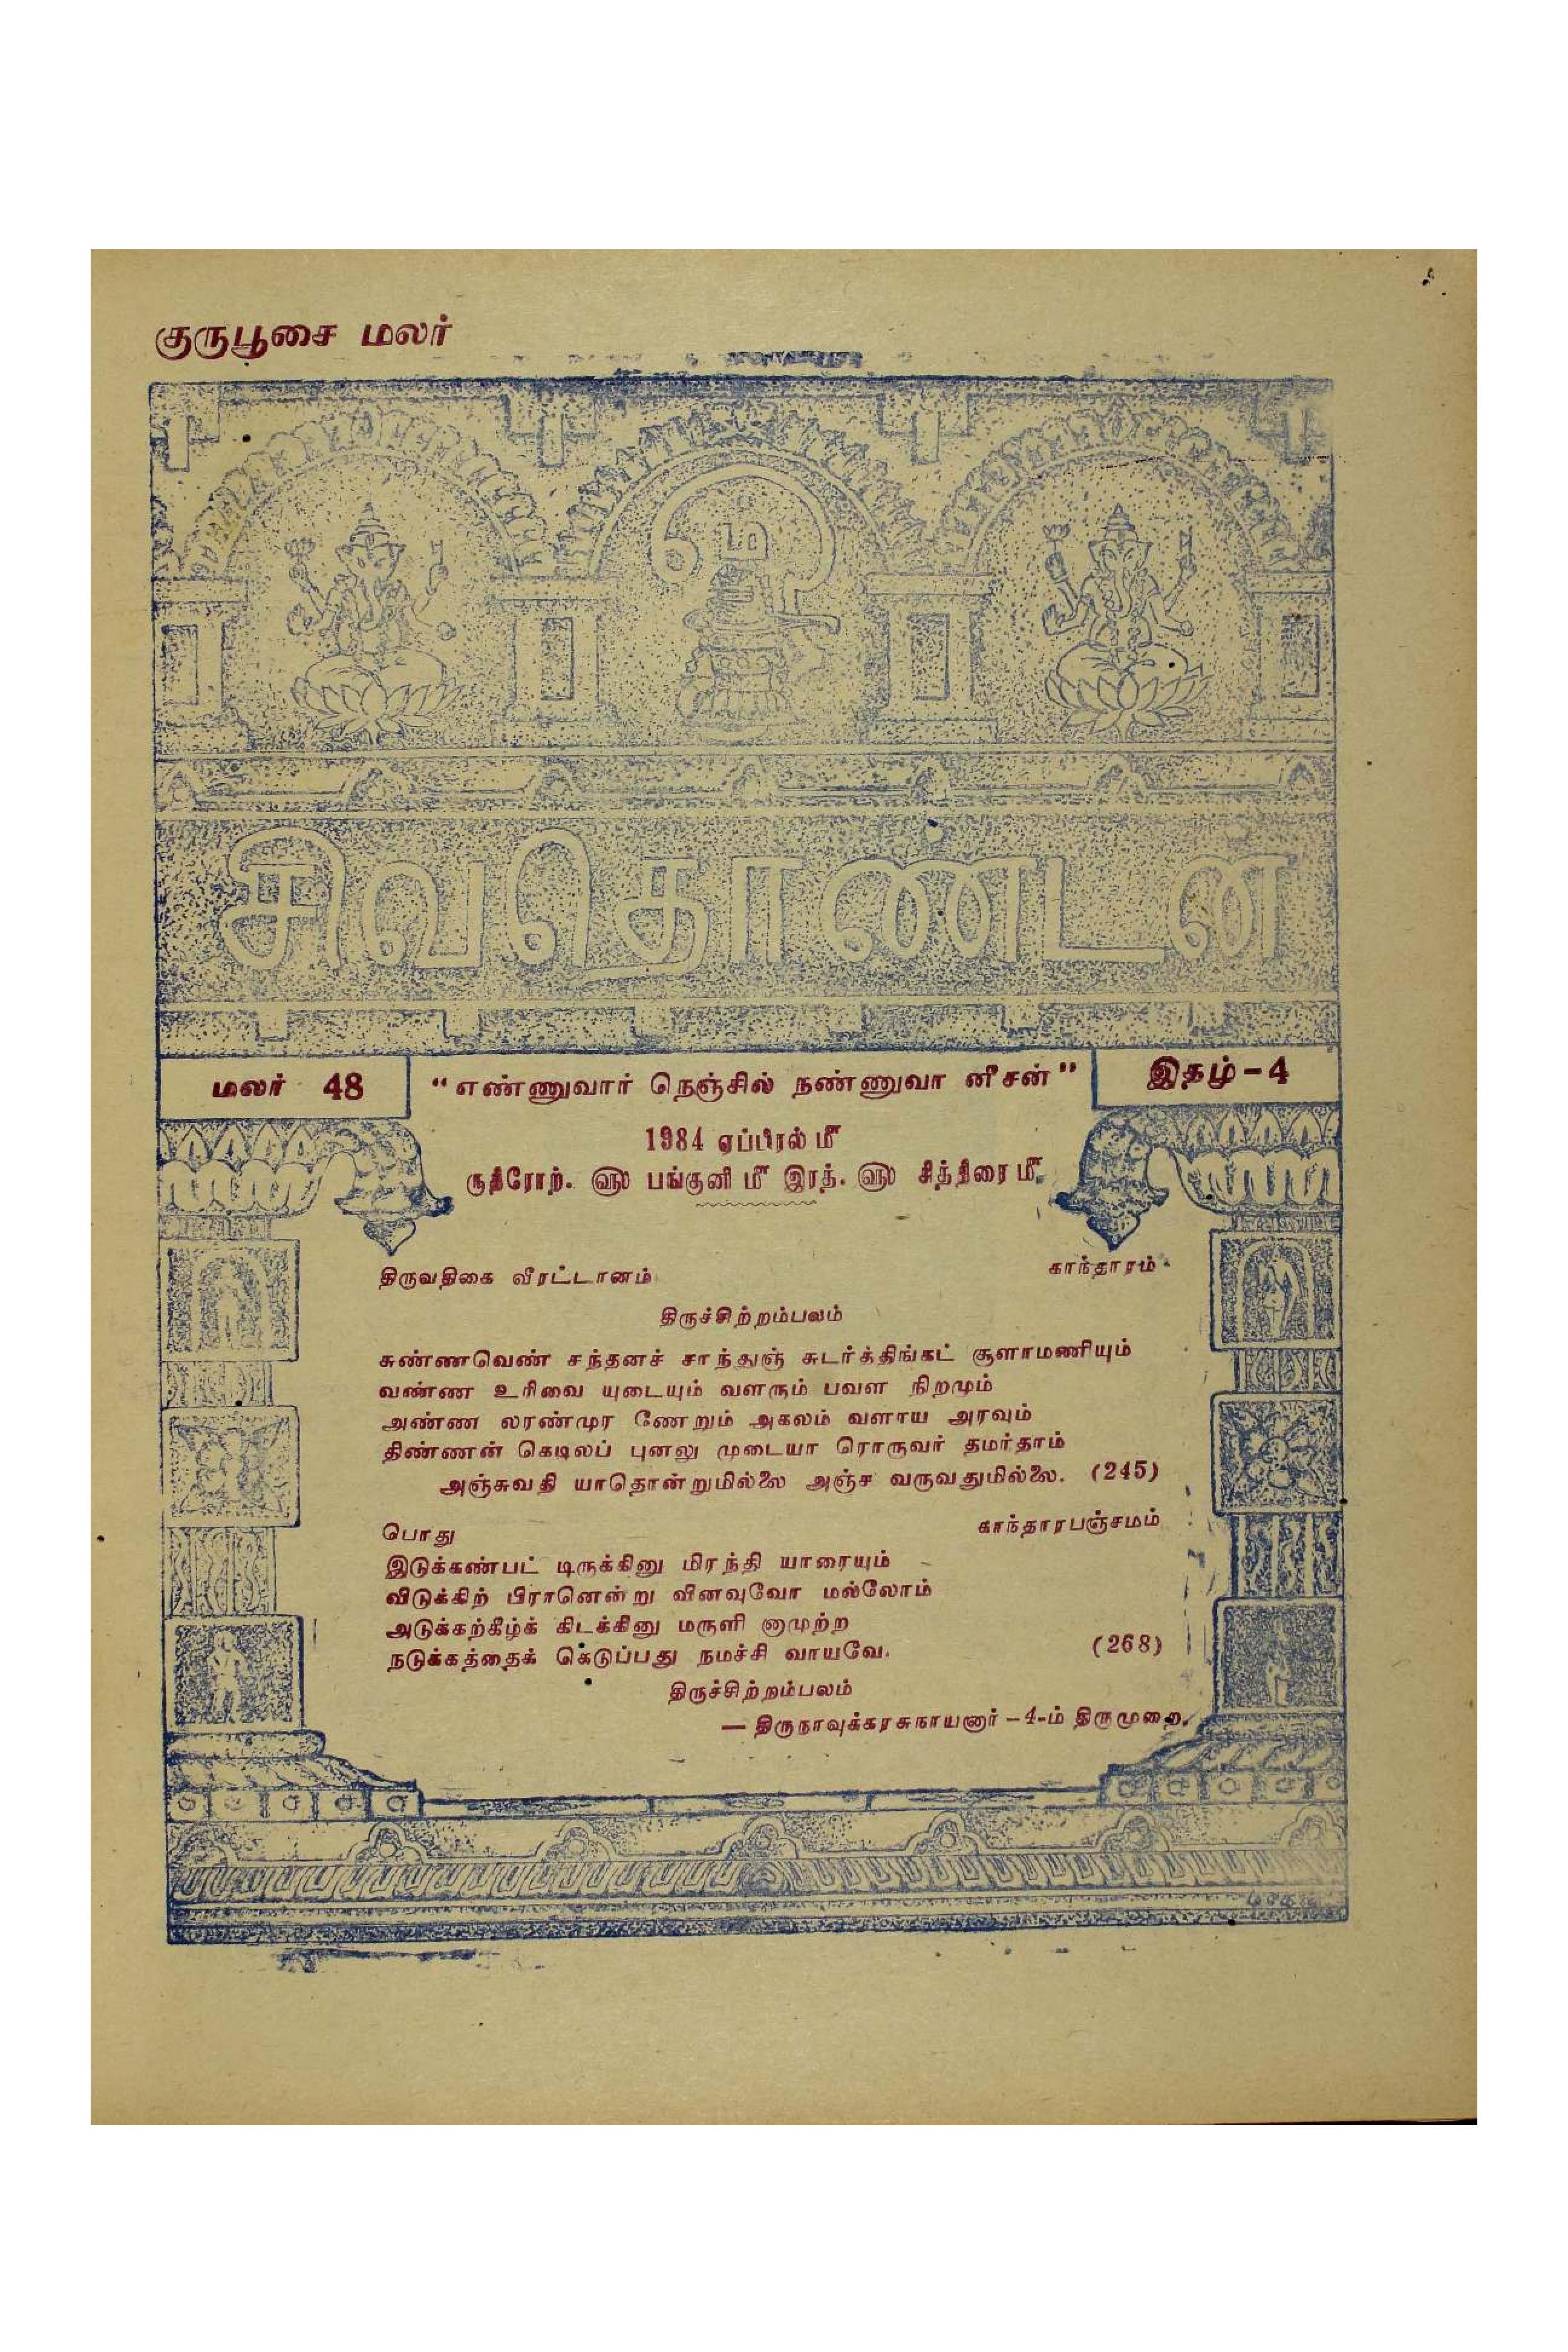 குருபூசை மலர்
ஓம்
சிவதொண்டன்
மலர் 48
"எண்ணுவார் நெஞ்சில் நண்ணுவா னீசன்"
இதழ்-4
1984 ஏப்பிரல் ௴
ருதிரோற். ௵ பங்குனி ௴ இரத். ௵ சித்திரை ௴
திருவதிகை வீரட்டானம் காந்தாரம்
திருச்சிற்றம்பலம்
சுண்ணவெண் சந்தனச் சாந்துஞ் சுடர்த்திங்கட் சூளாமணியும்
வண்ண உரிவை யுடையும் வளரும் பவள நிறமும்
அண்ண லரண்முர ணேறும் அகலம் வளாய அரவும்
திண்ணன் கெடிலப் புனலு முடையா ரொருவர் தமர்தாம்
அஞ்சுவதி யாதொன்றுமில்லை அஞ்ச வருவதுமில்லை. (245)
பொது காந்தாரபஞ்சமம்
இடுக்கண்பட் டிருக்கினு மிரந்தி யாரையும்
விடுக்கிற் பிரானென்று வினவுவோ மல்லோம்
அடுக்கற்கீழ்க் கிடக்கினு மருளி னாமுற்ற
நடுக்கத்தைக் கெடுப்பது நமச்சி வாயவே. (268)
திருச்சிற்றம்பலம்
— திருநாவுக்கரசுநாயனார் – 4-ம் திருமுறை.